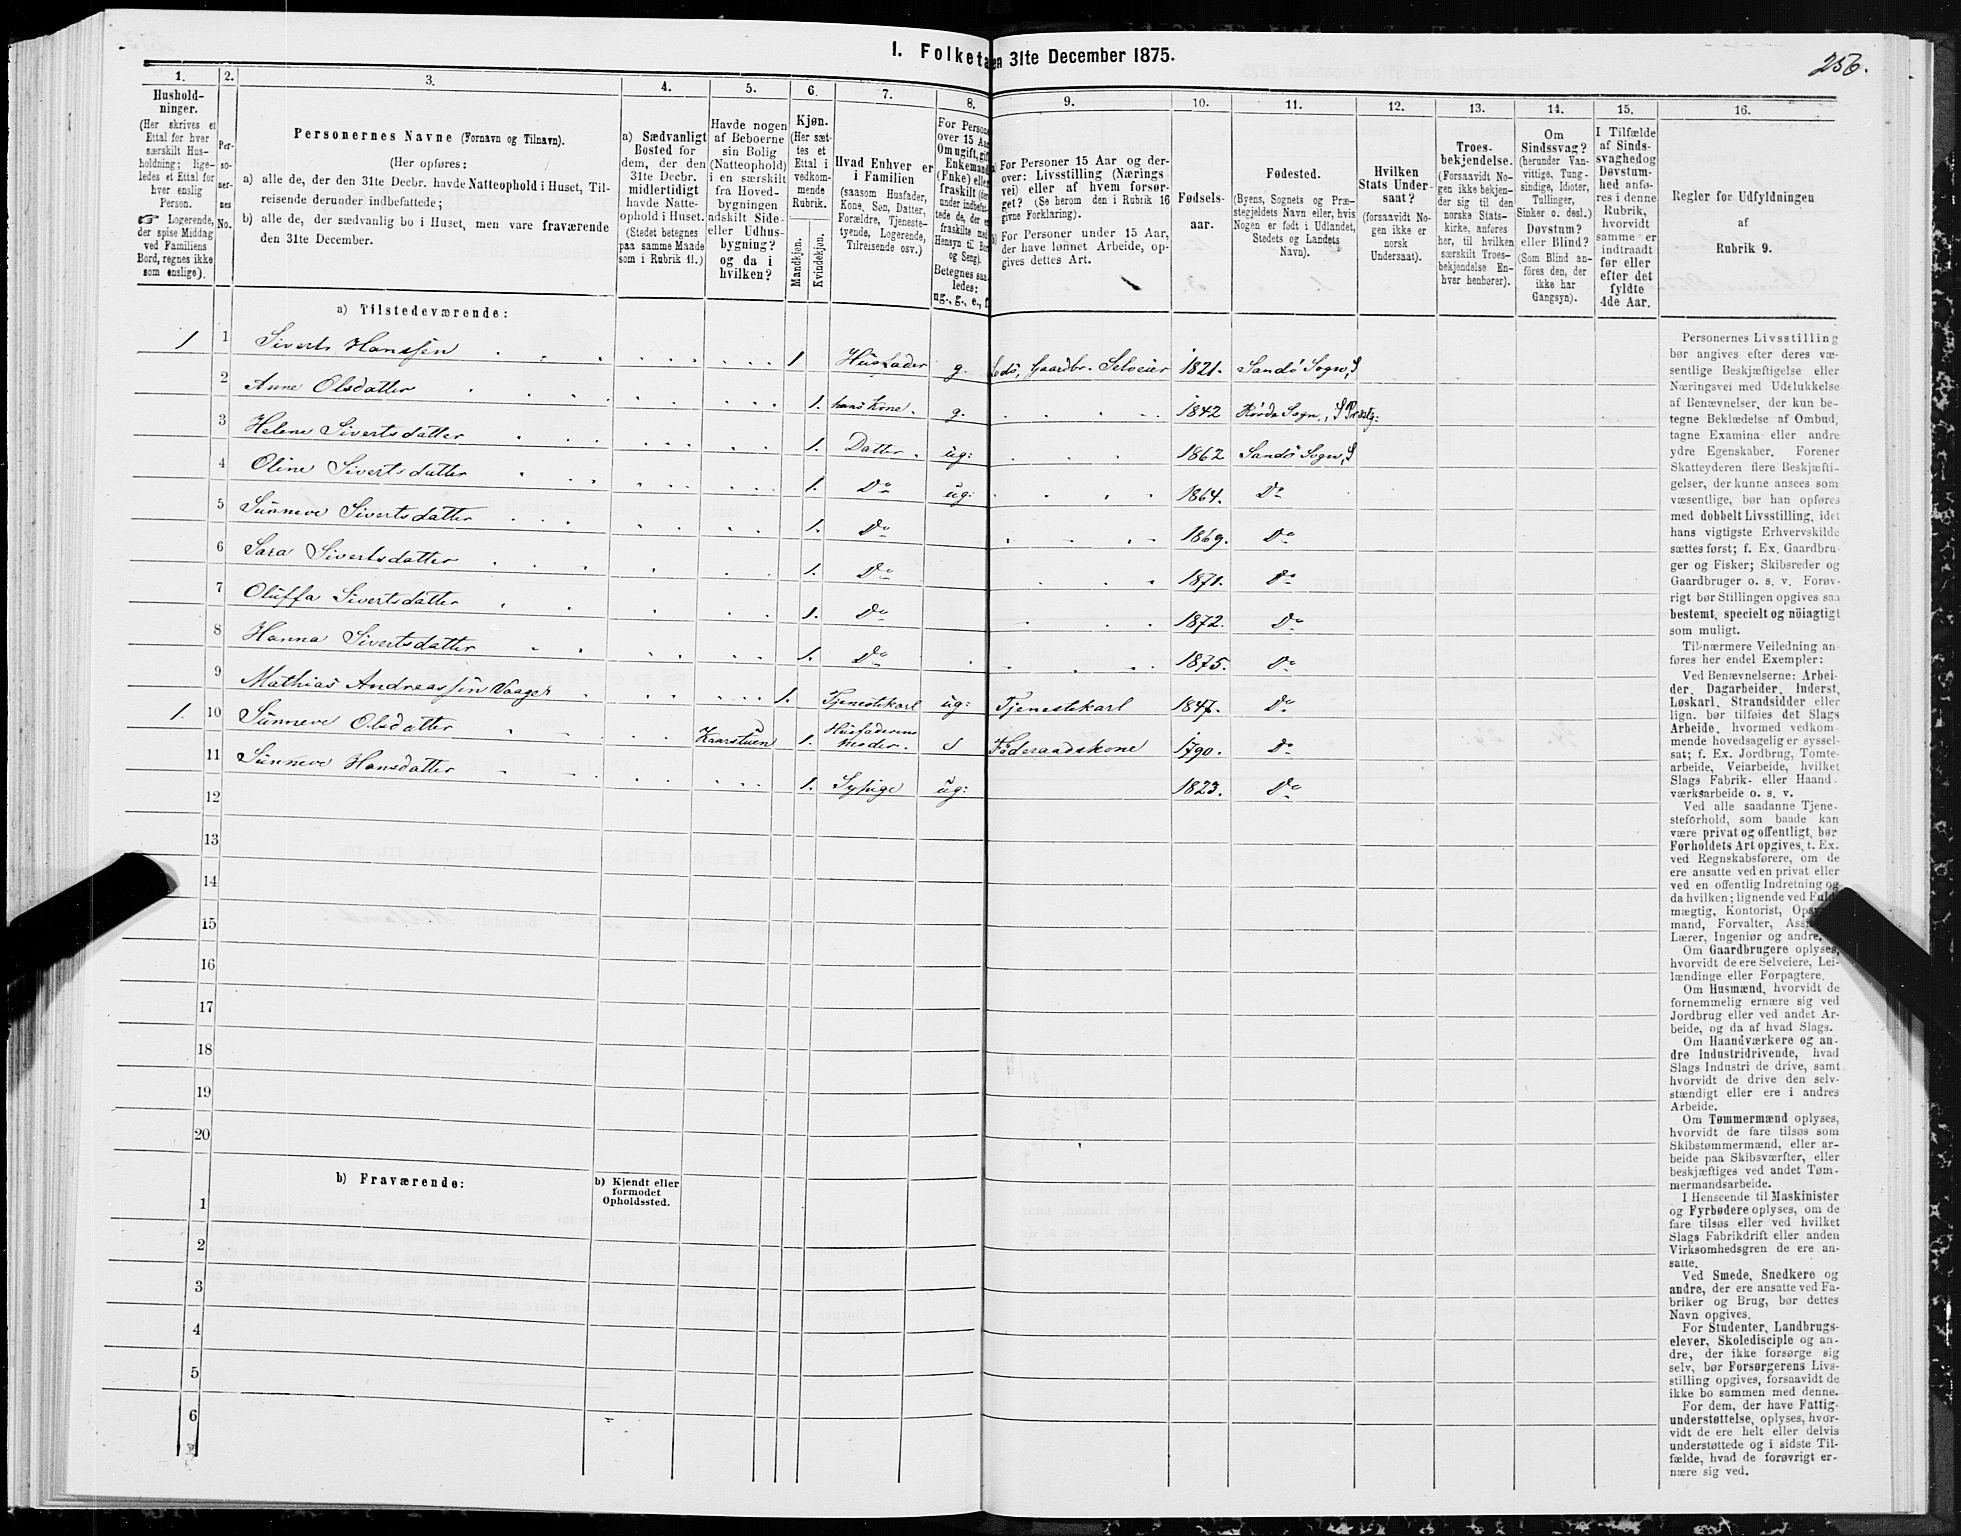 I. Folketa
en 31te December 1875.
256.
1.
Hushold-
ninger.
(Her skrives et
Ettal for hver
særskilt Hus-
holdning; lige-
ledes et Ettal for
hver enslig
Person.
Logerende,
der spise Middag
ved Familiens
Bord, regnes ikke
som enslige).
2.
Per-
so-
ner-
nes
No.
3.
Personernes Navne (Fornavn og Tilnavn).
(Her opføres:
a) alle de, der den 31te Decbr. havde Natteophold i Huset, Til-
reisende derunder indbefattede;
b) alle de, der sædvanlig bo i Huset, men vare fraværende
den 31te December.
4.
a) Sædvanligt
Bosted for
dem, der den
31te Decbr.
midlertidigt
havde Natte-
ophold i Huset.
(Stedet betegnes
paa samme Maade
som i Rubrik 11.)
5.
Havde nogen
af Beboerne
sin Bolig
(Natteophold)
i en særskilt
fra Hoved-
bygningen
adskilt Side-
eller Udhus-
bygning?
og da i
hvilken?
6.
Kjøn.
(Her sæt-
tes et
Ettal i
vedkom-
mende
Rubrik.
Mandkjøn.
Kvindekjøn.
7.
Hvad Enhver er
i Familien
(saasom Husfader,
Kone, Søn, Datter,
Forældre, Tjeneste-
tyende, Logerende,
Tilreisende osv.)
8.
For Persone
over 15 Aar
Om ugift, gift
Enkemand
(Enke) elle
fraskilt (der
under indbefat-
tede de, der e
fraskilte med
Hensyn til Bor
og Seng).
Betegnes saa
ledes:
ug., g., e., f.
9.
For Personer 15 Aar og der-
over: Livsstilling (Nærings
vei) eller af hvem forsør-
get? (Se herom den i Rubrik 16
givne Forklaring).
For Personer under 15 Aar,
der have lønnet Arbeide, op-
gives dettes Art.
10.
Fødsels-
aar.
11.
Fødested.
(Byens, Sognets og Præ-
stegjeldets Navn eller, hvis
Nogen er født i Udlandet,
Stedets og Landets
Navn).
12.
Hvilken
Stats Under-
saat?
(forsaavidt No-
gen ikke er
norsk
Undersaat).
13.
Troes-
bekjendelse.
(Forsaavidt No-
gen ikke bekjen-
der sig til den
norske Stats-
kirke, anføres
her, til hvilken
særskilt Troes-
bekjendelse En-
hver henhører).
14.
Om
Sindssvag?
(herunder Van-
vittige, Tung-
sindige, Idioter,
Tullinger,
Sinker o. desl.)
Døvstum?
eller Blind?
(Som Blind an-
føres den, der
ikke har
Gangsyn).
15.
I Tilfælde
af Sinds-
svaghed og
Døvstum-
hed anfø-
res i denne
Rubrik,
hvorvidt
samme er
indtraadt
før eller
efter det
fyldte
4de Aar.
16.
Regler for Udfyldningen
af
Rubrik 9.
a) Tilstedeværende:
1 1 Siverts Hanssen 1 Husfader g. Gaardbr. Selveier 1821. Sandö Sogn, S
2 Anne Olsdatter 1. hans Kone. g. 1842 Sogn., S Præstg:
3 Helene Sivertsdatter 1. Datter. ug: 1862 Sandö Sogn, S
4 Oline Sivertsdatter 1. Do ug: 1864. Do
5 Sünneve Sivertsdatter 1. Do 1869. Do
6 Sara Sivertsdatter 1. Do 1871. Do
7 Oluffa Sivertsdatter 1. Do 1872. Do
8 Hanna Sivertsdatter 1. Do 1875. Do
9 Mathias Andreassen Vaager 1. Tjenestekarl ug: Tjenestekarl 1847. Do
1. 10 Sünneve Olsdatter Kaarstuen 1. Husfaderens Moder. Föderaadskone 1790. Do
11 Sünneve Hansdatter 1. Sypige ug: 1823. Do
12
13
14
15
16
17
18
19
20
b) Fraværende:
b) Kjendt eller
formodet
Opholdssted.
1
2
3
4
5
6
Personernes Livsstilling
bør angives efter deres væ-
sentlige Beskjæftigelse eller
Næringsvei med Udelukkelse
af Benævnelser, der kun be-
tegne Beklædelse af Ombud,
tagne Examina eller andre
ydre Egenskaber. Forener
Skatteyderen flere Beskjæfti-
gelser, der kunne ansees som
væsentlige, bør han opføres
med dobbelt Livsstilling, idet
hans vigtigste Erhvervskilde
sættes først; f. Ex. Gaardbru-
ger og Fisker; Skibsreder og
Gaardbruger o. s. v. Forøv-
rigt bør Stillingen opgives saa
bestemt, specielt og nöiagtigt
som muligt.
Til nærmere Veiledning an-
føres her endel Exempler:
Ved Benævnelserne: Arbei-
der, Dagarbeider, Inderst,
Løskarl, Strandsidder eller
lign. bør tilføies det Slags
Arbeide, hvormed vedkom-
mende hovedsagelig er syssel-
sat; f. Ex. Jordbrug, Tomte-
arbeide, Veiarbeide, hvilket
Slags Fabrik- eller Haand-
værksarbeide o. s. v.
Ved alle saadanne Tjene-
steforhold, som baade kan
være privat og offentligt, bør
Forholdets Art opgives, t. Ex.
ved Regnskabsførere, om de
ere ansatte ved en privat eller
ved en offentlig Indretning og
da hvilken; lignende ved Fuld-
mægtig, Kontorist, Opsyns-
mand, Forvalter, Assi
Lærer, Ingeniør og andre.
Om Gaardbrugere oplyses,
hvorvidt de ere Selveiere, Lei-
lændinge eller Forpagtere.
Om Husmænd, hvorvidt de
fornemmelig ernære sig ved
Jordbrug eller ved andet Ar-
beide, og da af hvad Slags.
Om Haandværkere og an-
dre Industridrivende, hvad
Slags Industri de drive, samt
hvorvidt de drive den selv-
stændigt eller ere i andres
Arbeide.
Om Tømmermænd oplyses,
hvorvidt de fare tilsøs som
Skibstømmermænd, eller ar-
beide paa Skibsværfter, eller
beskjæftiges ved andet Tøm-
mermandsarbeide.
I Henseende til Maskinister
og Fyrbødere oplyses, om de
fare tilsøs eller ved hvilket
Slags Fabrikdrift eller anden
Virksomhedsgren de ere an-
satte.
Ved Smede, Snedkere og
andre, der ere ansatte ved Fa-
briker og Brug, bør dettes
Navn opgives.
For Studenter, Landbrugs-
elever, Skoledisciple og an-
dre, der ikke forsørge sig
selv, bør Forsørgerens Livs-
stilling opgives, forsaavidt de
ikke bo sammen med denne.
For dem, der have Fattig-
understøttelse, oplyses, hvor-
vidt de ere helt eller delvis
understøttede og i sidste Til-
fælde, hvad de forøvrigt er-
nære sig ved.